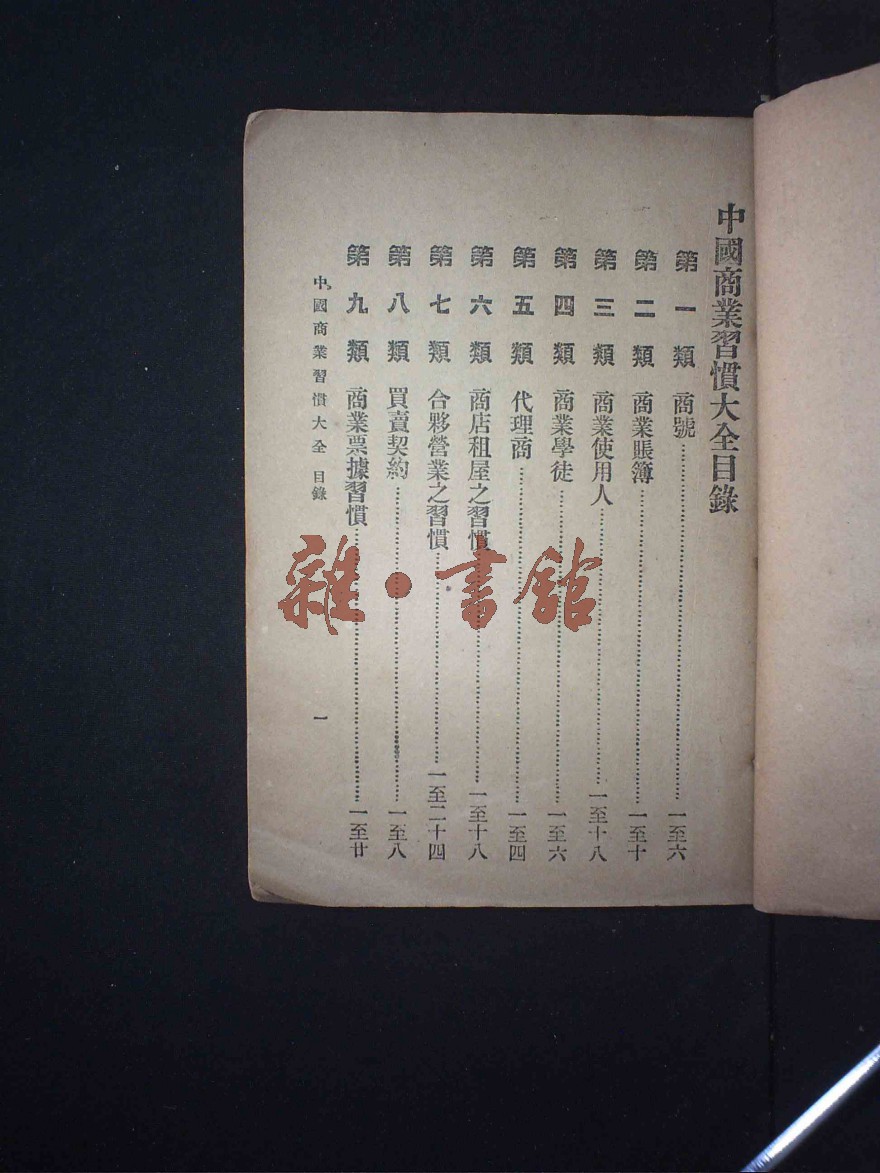 中國商業習慣大全目錄
第一類 商號……一至六
第二類 商業賬簿……一至十
第三類 商業使用人……一至十八
第四類 商業學徒……一至六
第五類 代理商……一至四
第六類 商店租屋之習慣……一至十八
第七類 合夥營業之習慣……一至二十四
第八類 買賣契約……一至八
第九類 商業票據習慣……一至廿
中國商業習慣大全 目錄 一
雜·書館